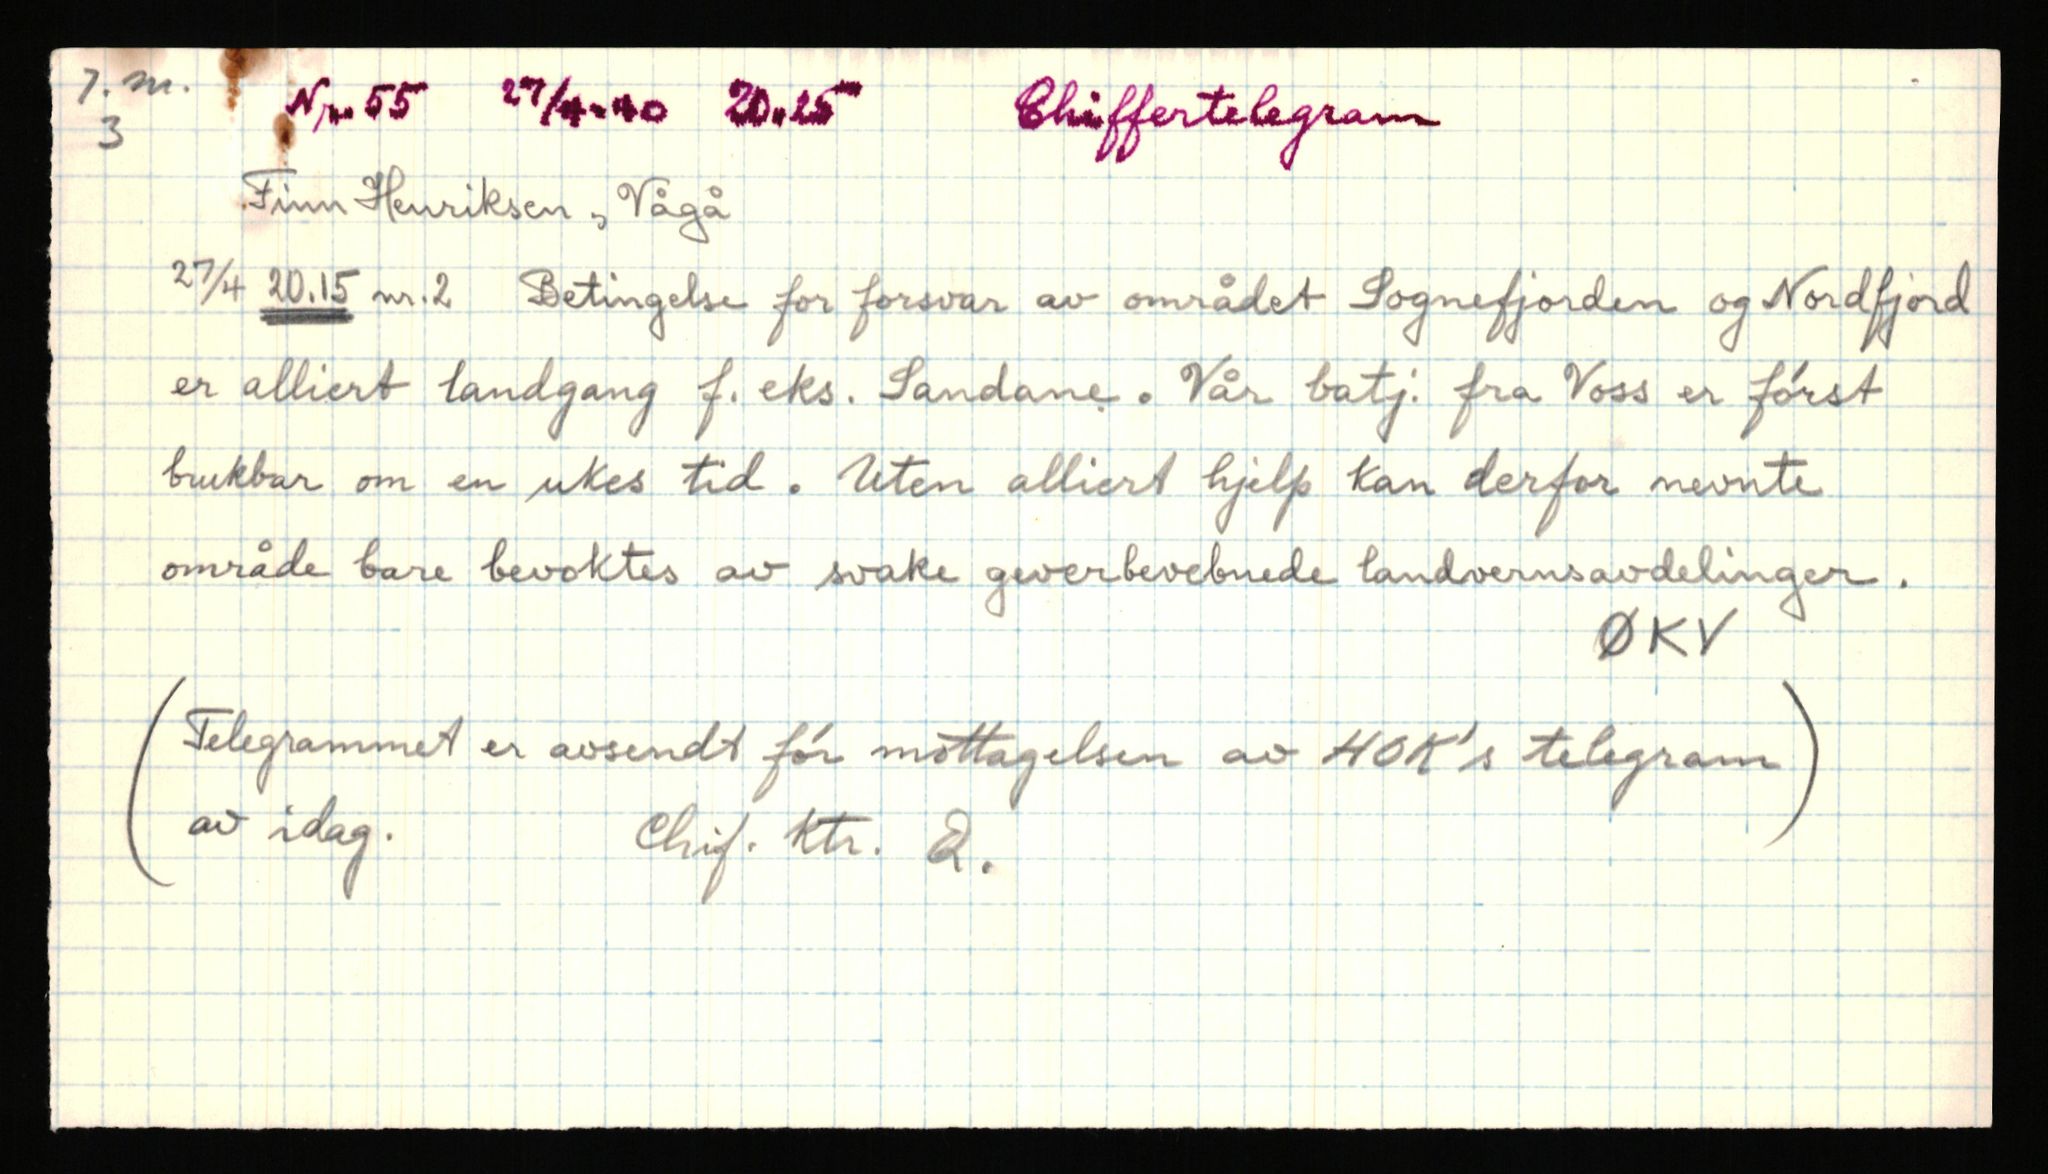 7. m.
3
Nr. 55 27/4-40 20.25 Chiffertelegram
Finn Henriksen, Vågå
27/4 20.15 nr. 2 Betingelse for forsvar av området Sognefjorden og Nordfjord
er alliert landgang f. eks. Sandane. Vår batj. fra Voss er først
brukbar om en ukes tid. Uten alliert hjelp kan derfor nevnte
område bare bevoktes av svake geverbevebnede landvernsavdelinger.
ØKV
(Telegrammet er avsendt før mottagelsen av HOK's telegram
av idag.)
Chif. ktr.